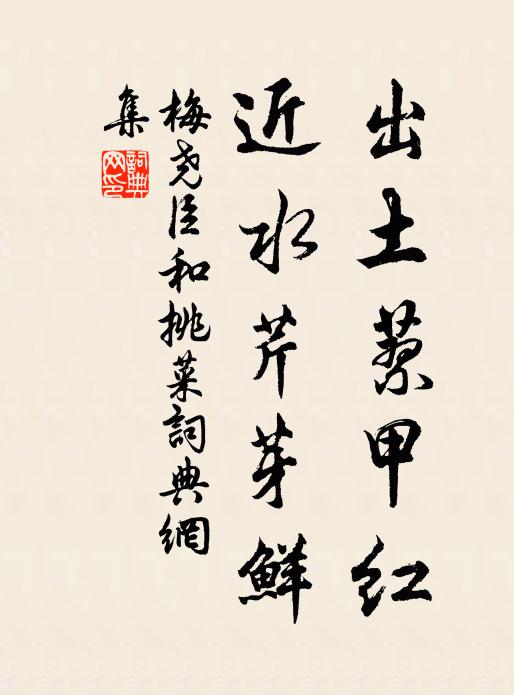 出土蓼甲红
近水芹芽鲜
梅尧臣和挑菜詞典網
集
詞典
网印